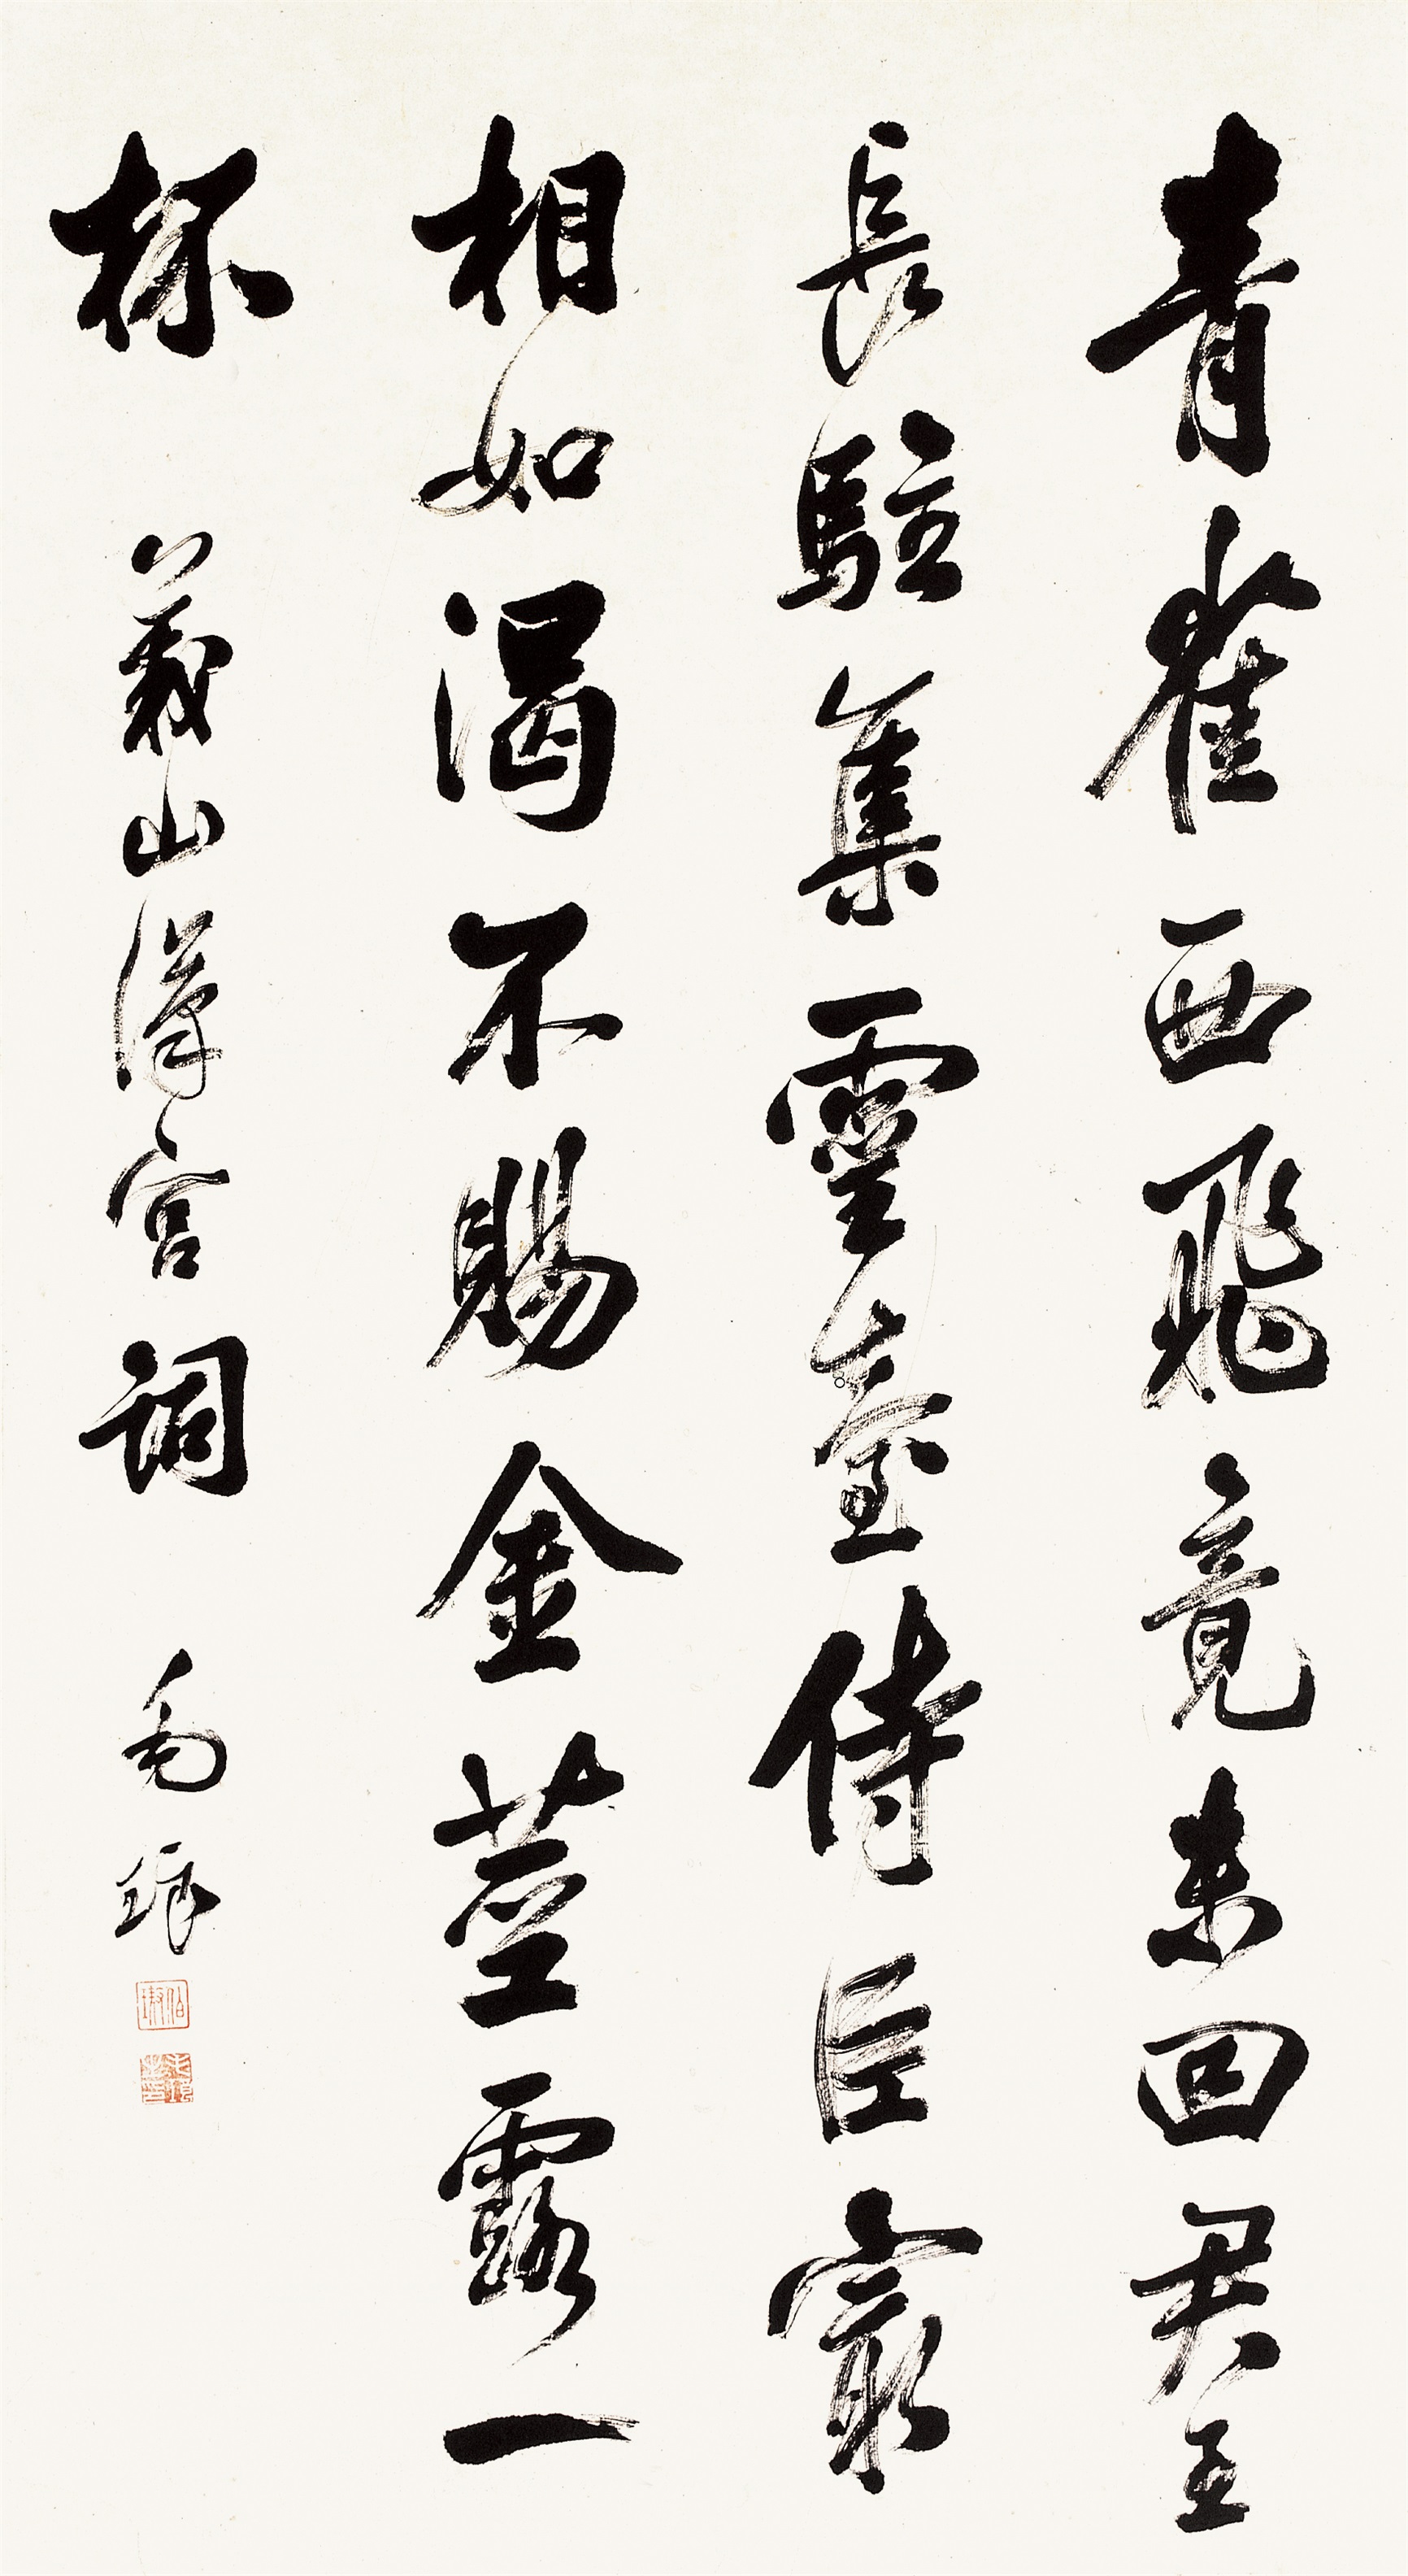 青雀西飛竟未回君王
長駐集靈臺侍臣冣
相如渴不賜金莖露一
杯 義山漢宮詞 毛琅